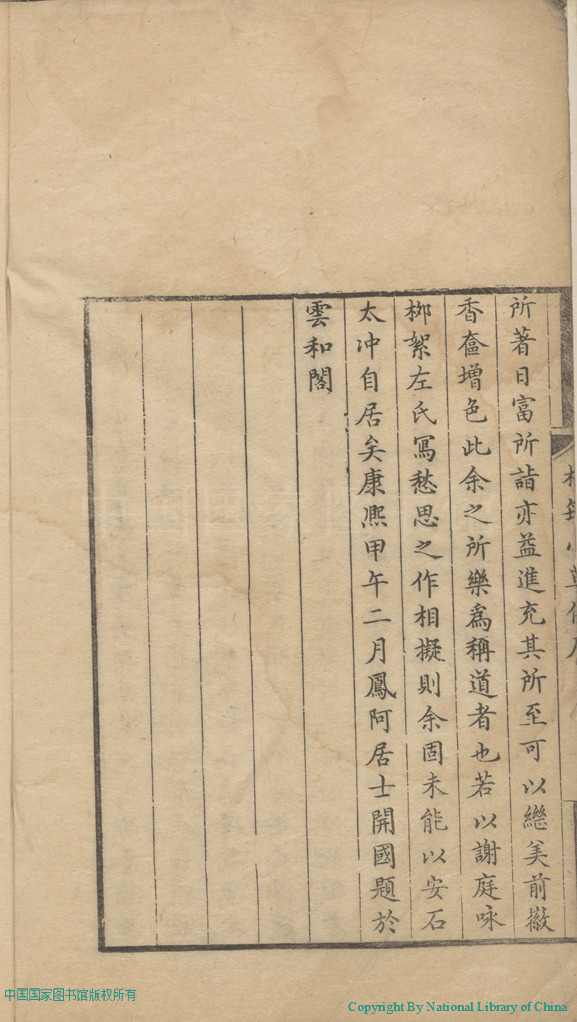 所著日富所詣亦益進充其所至可以繼美前徽
香奩增色此余之所樂爲稱道者也若以謝庭咏
柳絮左氏寫愁思之作相擬則余固未能以安石
太冲自居矣康熈甲午二月鳳阿居士開國題於
雲和閣
中国国家图书馆版权所有
Copyright By National Library of China